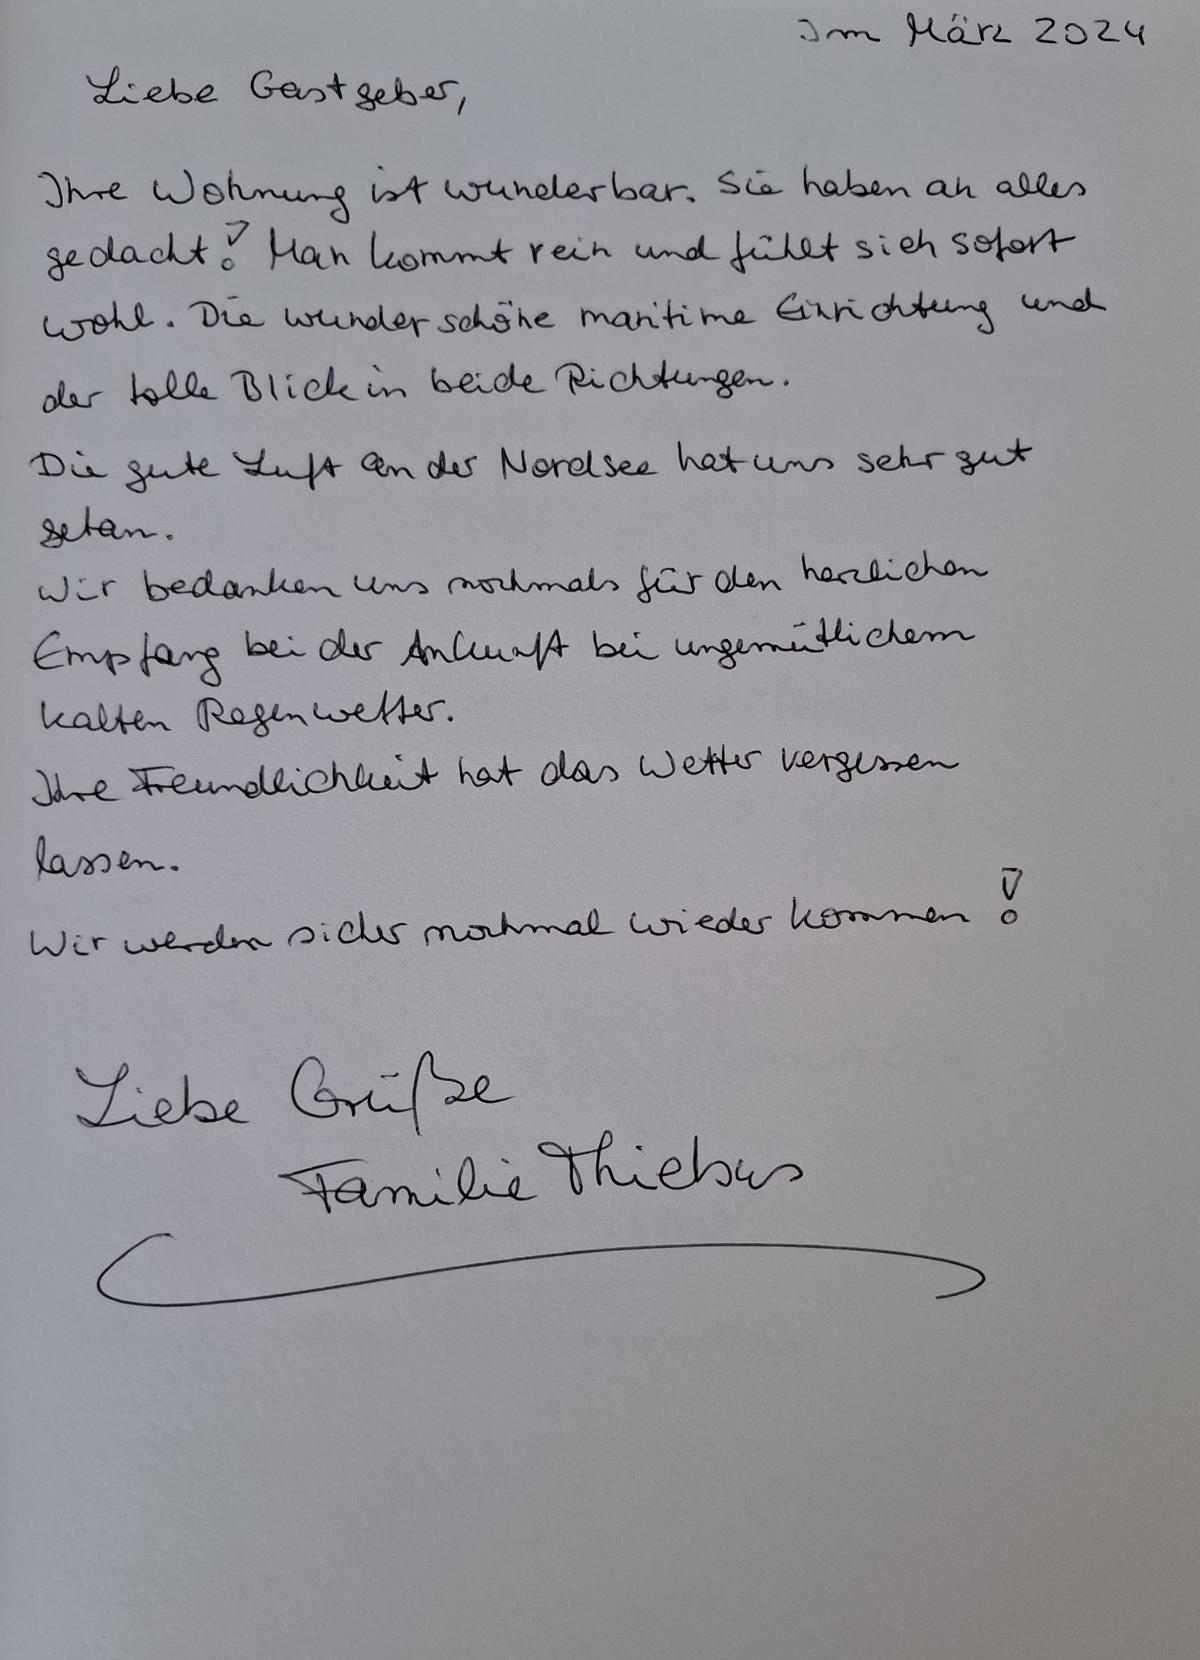 Im März 2024
Liebe Gastgeber,
Ihre Wohnung ist wunderbar. Sie haben an alles
gedacht! Man kommt rein und fühlt sich sofort
wohl. Die wunderschöne maritime Einrichtung und
der tolle Blick in beide Richtungen.
Die gute Luft an der Nordsee hat uns sehr gut
getan.
Wir bedanken uns nochmals für den herzlichen
Empfang bei der Ankunft bei ungemütlichem
kalten Regenwetter.
Ihre Freundlichkeit hat das Wetter vergessen
lassen.
Wir werden sicher nochmal wieder kommen!
Liebe Grüße
Familie Thiebus